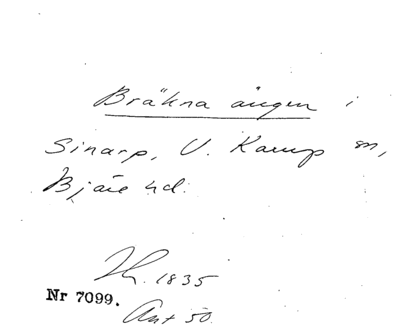 Bräkna ängen i
Sinarp, V. Karup sn,
Bjäre hd.
1835
Nr 7099.
Ant 50